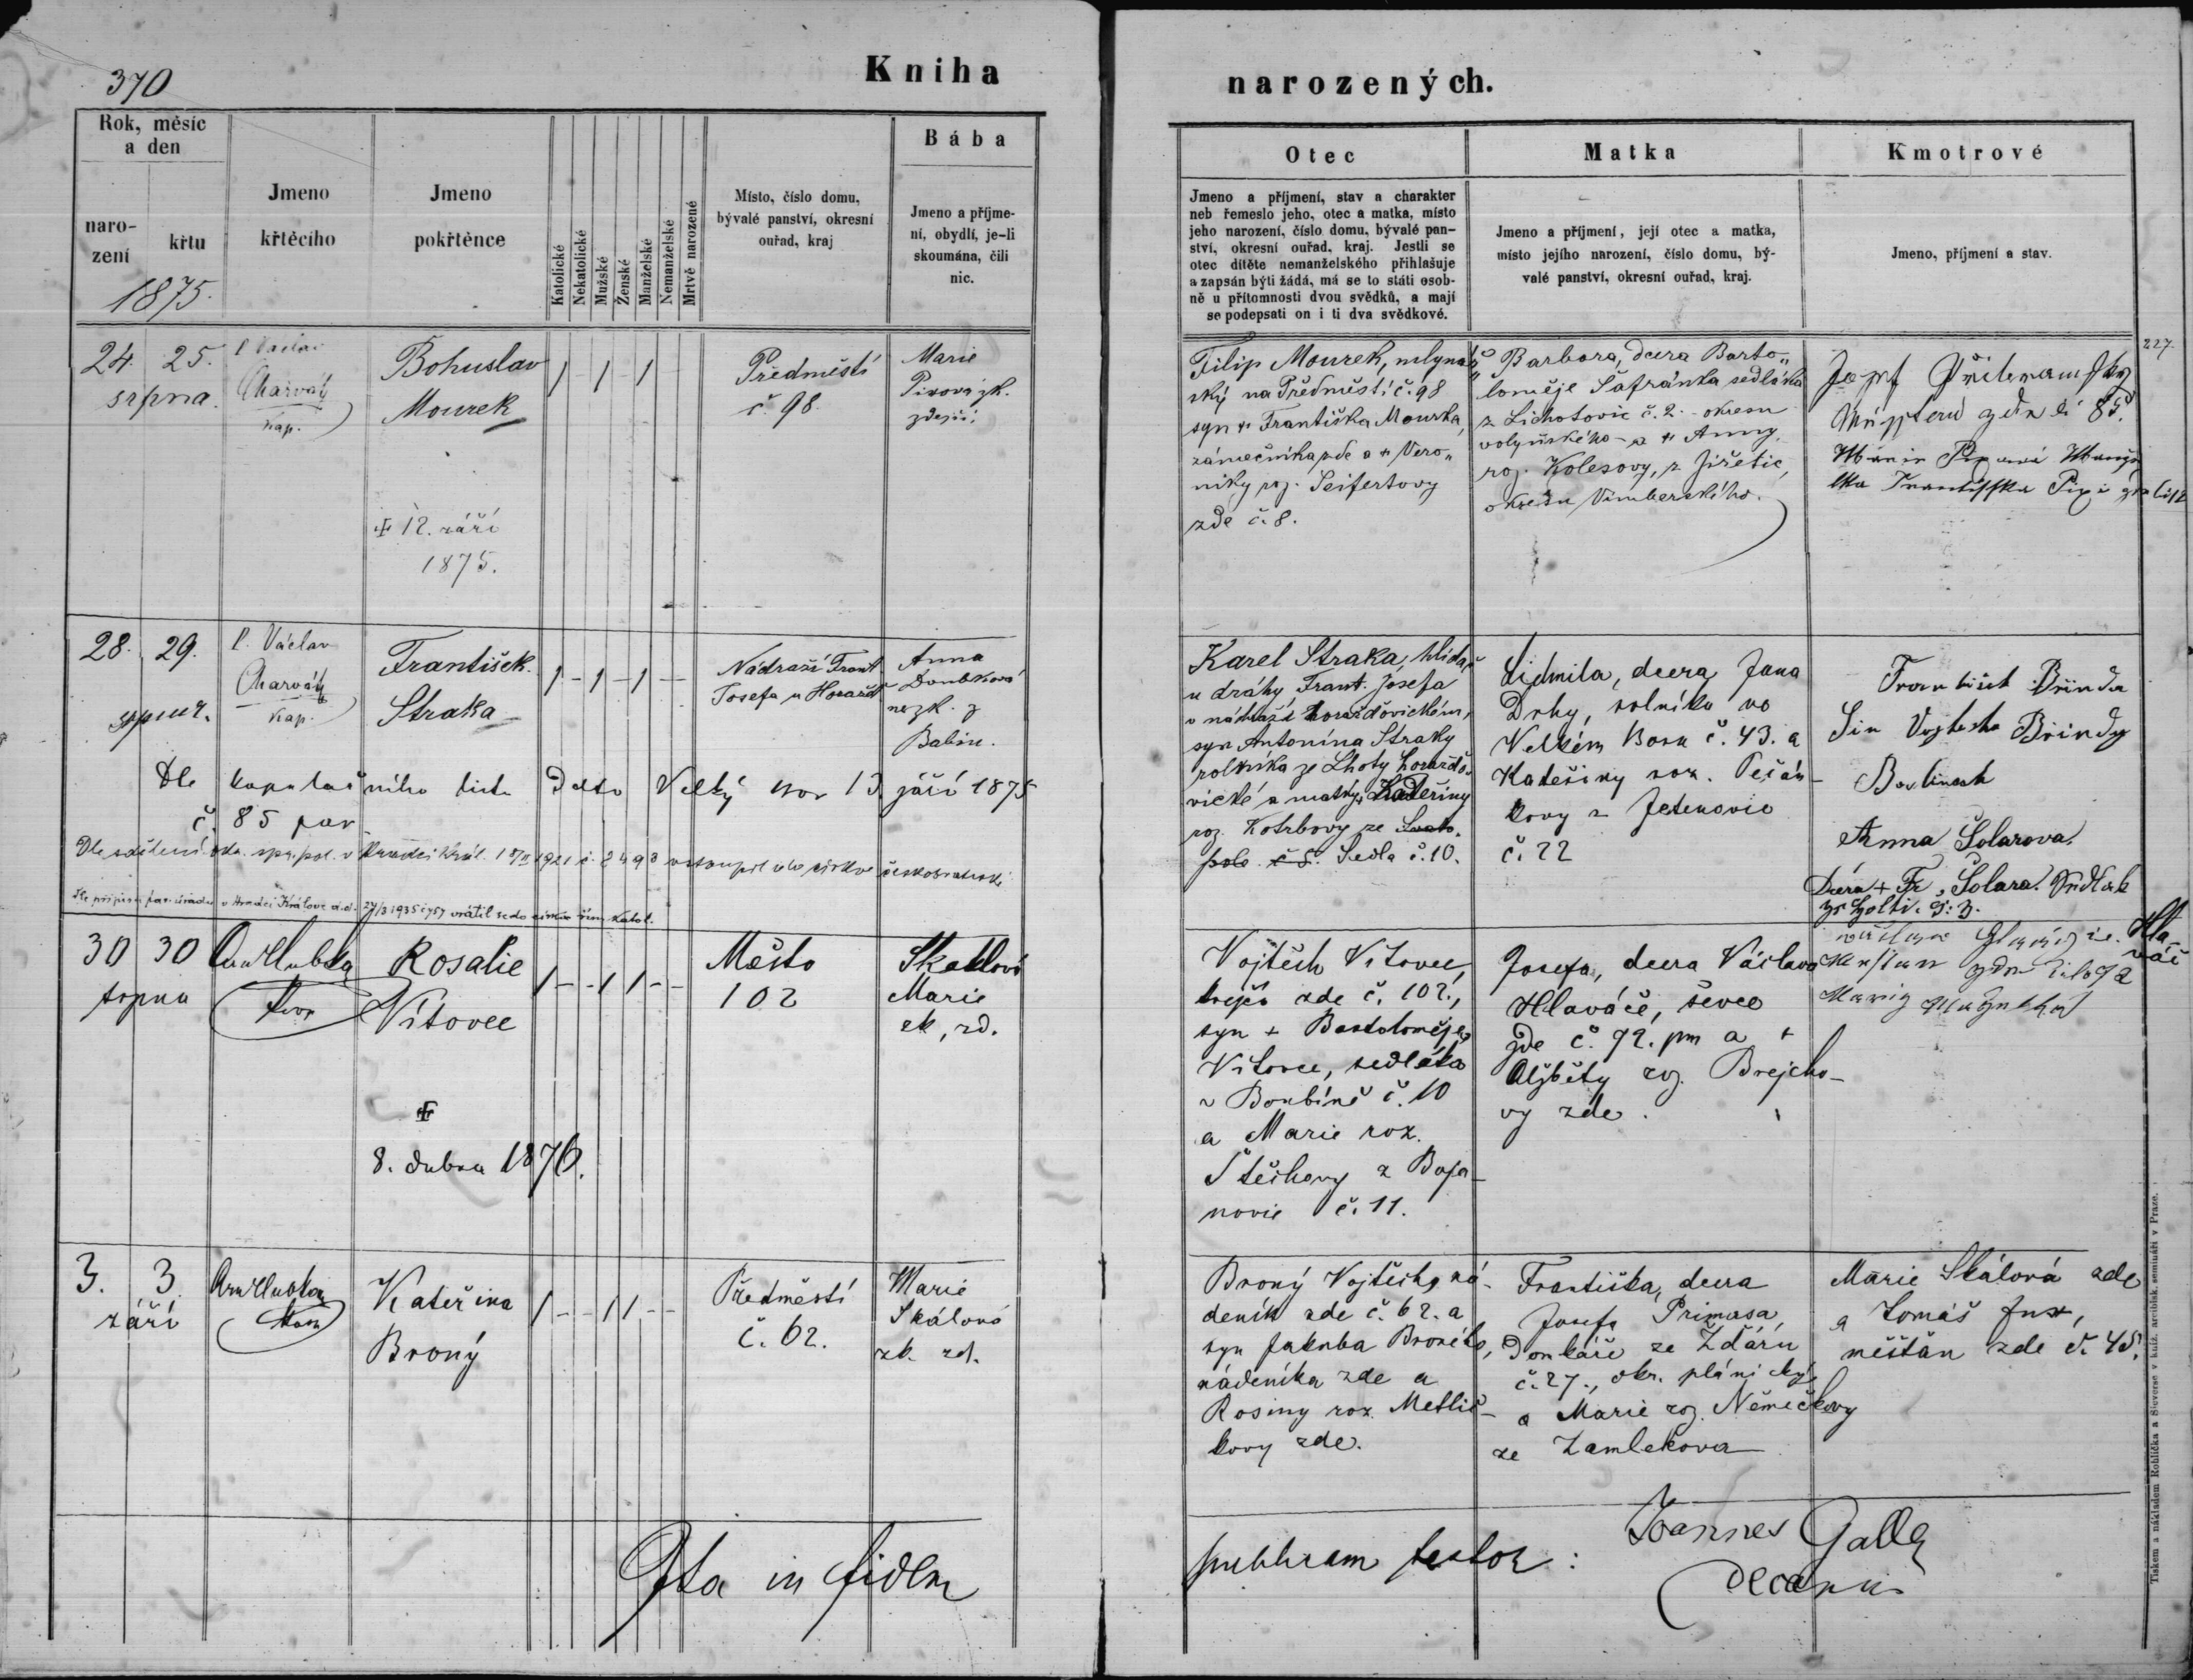 370
Kniha
narozených.
Rok, měsíc
a den
naro-
zení
křtu
1875.
Jmeno
křtěcího
Jmeno
pokřtěnce
Katolické
Nekatolické
Mužské
Ženské
Manželské
Nemanželské
Mrtvě narozené
Místo, číslo domu,
bývalé panství, okresní
ouřad, kraj
Bába
Jmeno a příjme-
ní, obydlí, je-li
skoumána, čili
nic.
Otec
Jmeno a příjmení, stav a charakter
neb řemeslo jeho, otec a matka, místo
jeho narození, číslo domu, bývalé pan-
ství, okresní ouřad, kraj. Jestli se
otec dítěte nemanželského přihlašuje
a zapsán býti žádá, má se to státi osob-
ně u přítomnosti dvou svědků, a mají
se podepsati on i ti dva svědkové.
Matka
Jmeno a příjmení, její otec a matka,
místo jejího narození, číslo domu, bý-
valé panství, okresní ouřad, kraj.
Kmotrové
Jmeno, příjmení a stav.
227.
24. 25.
srpna.
P. Václav
Charvát
kap.
Bohuslav
Mourek
1 - 1 - 1 -
Předměstí
č. 98.
Marie
Pixová zk.
zdejší
Filip Mourek, mlynář-
ský na Předměstí č. 98
syn + Františka Mourka,
zámečníka zde a + Vero-
niky roz. Seifertovy
zde č. 8.
Barbora, dcera Barto-
loměje Šafránka sedláka
z Lichotovic č. 2. okresu
volyňského - a + Anny,
roz. Kolesovy, z Jiřetic,
okresu Vimberského.
Josef
85.
+ 12. září
1875.
28. 29.
srpna.
P. Václav
Charvát
kap.
František
Straka
1 - 1 - 1 -
Nádraží Frant
Josefa u Horažď
Anna
Doubková
nezk. z
Babin.
Karel Straka, hlídač
u dráhy Frant. Josefa
v nádraží horažďovickém,
syn Antonína Straky
rolníka ze Lhoty horažďo-
vické a matky Kateřiny
roz. Kotrbovy ze
Sedla č. 10.
Lidmila, dcera Jana
Drhy, rolníka ve
Velkém Boru č. 43. a
Kateřiny roz. Pešán-
kovy z Jetenovic
č. 22
František Brinda
Sin Vojtecha Brindy
Anna Šolarova
Dcera + Fr. Šolara.
Dle kopulačního listu Ddto Velký Bor 13 září 1875
č. 85
Dle sdělení okr. spr. pol. v Hradci Král. 1921 č. 2498 vstoupil do církve českobratrské
Dle přípisu far. úřadu v Hradci Králové d.d. 27/3 1935 č 757 vrátil se do církve řím. katol.
30 30
srpna
Rosalie
Vítovec
1 - - 1 1 - -
Město
102
Skálová
Marie
zk, zd.
Vojtěch Vítovec,
krejčí zde č. 102,
syn + Bartoloměje
Vítovce, sedláka
z Boubína č. 10
a Marie roz.
Štěchovy z Boja-
novic č. 11.
Josefa, dcera Václava
Hlaváče, ševce
zde č. 92. pm a +
Alžběty roz. Brejcho-
vy zde.
Hla-
váč
+
8. dubna 1876.
3. 3.
září
Kateřina
Brony
1 - - 1 1 - -
Předměstí
č. 62.
Marie
Skálová
zk. zd.
Brony Vojtěch, ná-
deník zde č. 62. a
syn Jakuba Broného,
nádeníka zde a
Rosiny roz. Metlič-
kovy zde.
Františka, dcera
Josefa Primasa,
Domkáře ze Žďáru
č. 27., okr. plánický
a Marie roz. Němečkovy
ze Zamlekova
Marie Skálová zde
a Tomáš Fux,
měšťan zde č. 45.
Ita in fidem
publicam testor:
Joannes Galle
Decanus
Tiskem a nákladem Rohlíčka a Sieverse v kníž. arcibisk. semináři v Praze.